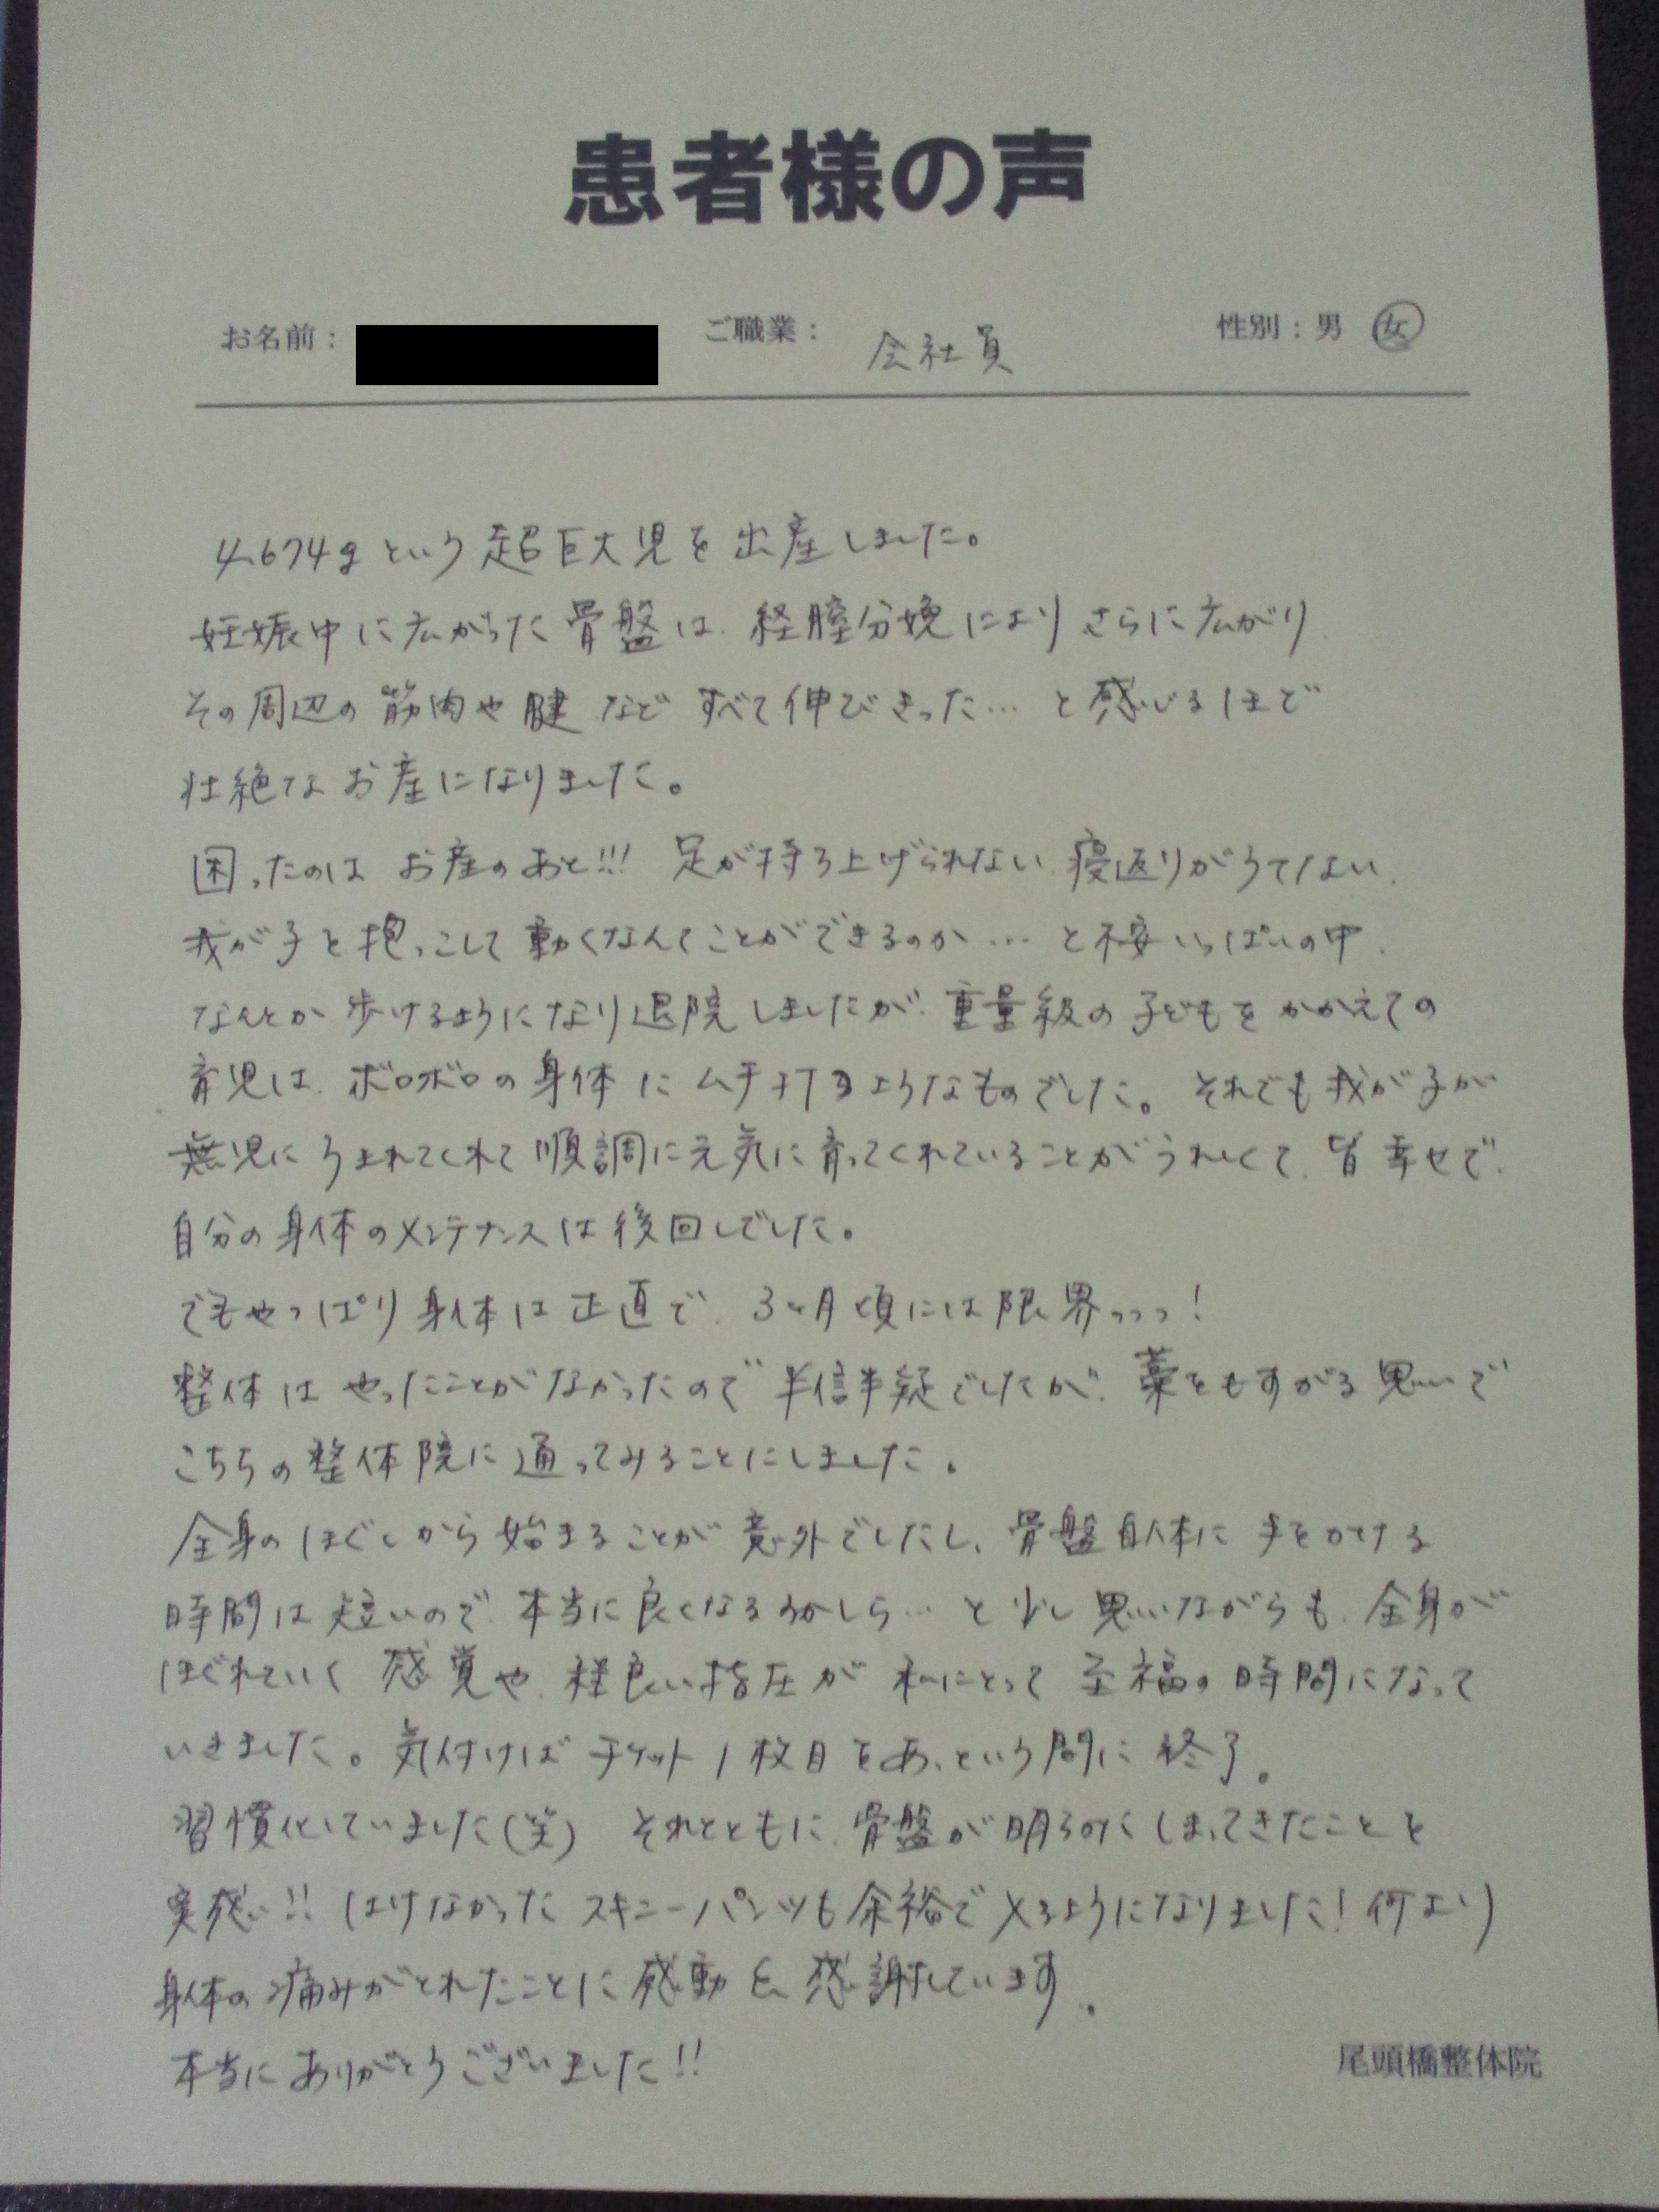 患者様の声
お名前： ご職業： 会社員 性別：男 女
4,674gという超巨大児を出産しました。
妊娠中に広がった骨盤は、経膣分娩によりさらに広がり、
その周辺の筋肉や腱などすべて伸びきった…と感じるほど
壮絶なお産になりました。
困ったのはお産のあと!!! 足が持ち上げられない、寝返りがうてない、
我が子を抱っこして動くなんてことができるのか…と不安いっぱいの中、
なんとか歩けるようになり退院しましたが、重量級の子どもをかかえての
育児は、ボロボロの身体にムチ打つようなものでした。それでも我が子が
無児にうまれてくれて順調に元気に育ってくれていることがうれしくて、皆幸せで、
自分の身体のメンテナンスは後回しでした。
でもやっぱり身体は正直で、3ヶ月頃には限界っっっ！
整体はやったことがなかったので半信半疑でしたが、藁をもすがる思いで
こちらの整体院に通ってみることにしました。
全身のほぐしから始まることが意外でしたし、骨盤自体に手をかける
時間は短いので、本当に良くなるのかしら…と少し思いながらも、全身が
ほぐれていく感覚や、程良い指圧が私にとって至福の時間になって
いきました。気付けばチケット1枚目をあっという間に終了。
習慣化していました(笑) それとともに、骨盤が明らかにしまってきたことを
実感!! はけなかったスキニーパンツも余裕で入るようになりました！何より
身体の痛みがとれたことに感動&感謝しています。
本当にありがとうございました!!
尾頭橋整体院